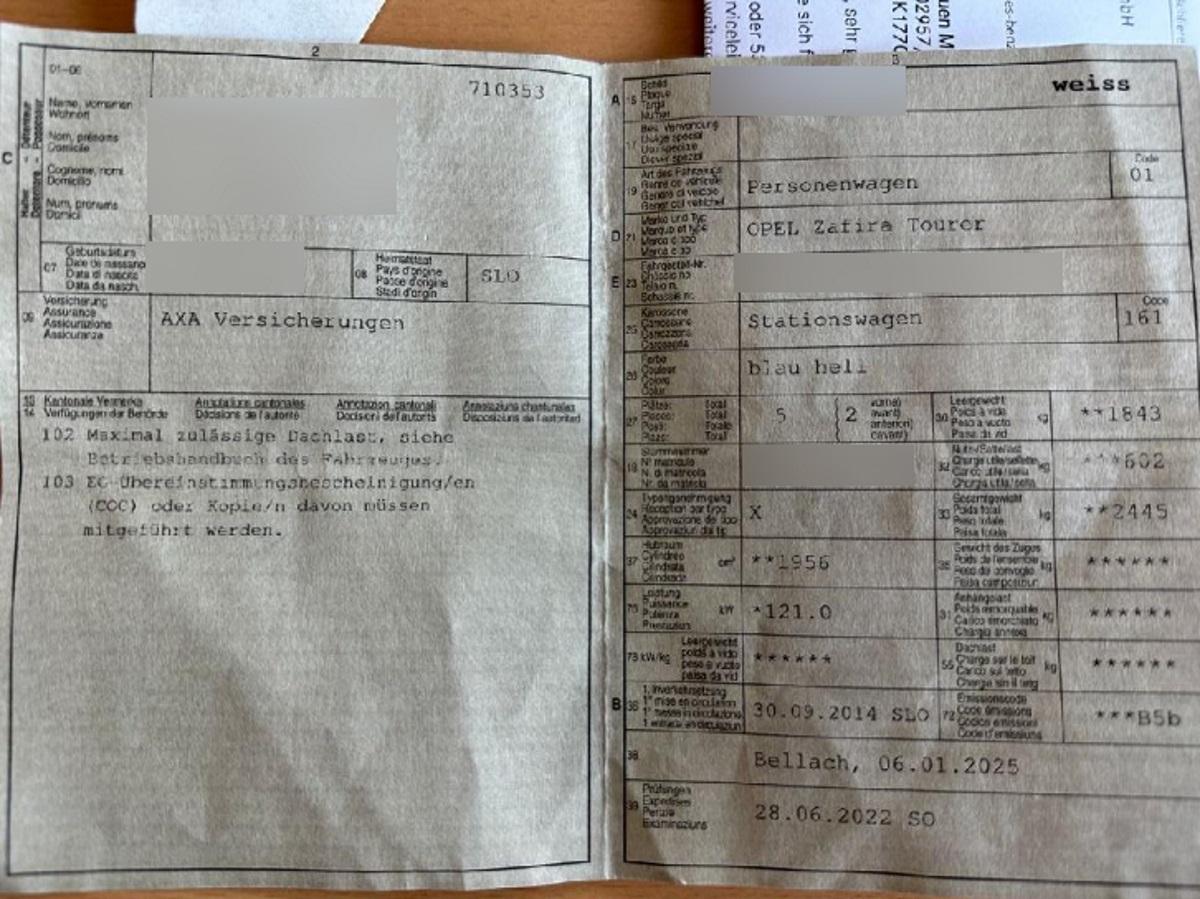 2
01-06
710353
C
Name, Vornamen
Wohnort
Nom, prénoms
Domicile
Cognome, nomi
Domicilio
Num, prenums
Domicil
07
Geburtsdatum
Data di nascita
Data da nasch.
08
Heimatstaat
Pays d'origine
Paese d'origine
Stadi d'origin
SLO
09
Versicherung
Assurance
Assicurazione
Assicuranza
AXA Versicherungen
13 Kantonale Vermerke
14 Verfügungen der Behörde
Annotations cantonales
Décisions de l'autorité
Annotazioni cantonali
Decisioni de l'autorità
Annotaziuns chantunalas
Disposiziuns da l'autoritad
102 Maximal zulässige Dachlast, siehe
Betriebshandbuch des Fahrzeuges.
103 EG-Übereinstimmungsbescheinigung/en
(COC) oder Kopie/n davon müssen
mitgeführt werden.
3
A 15
Schild
Plaque
Targa
Numer
weiss
17
Bes. Verwendung
Usage spécial
Uso speciale
Diever spezial
19
Art des Fahrzeugs
Genre de véhicule
Genere di veicolo
Gener dal vehichel
Personenwagen
Code
01
D 21
Marke und Typ
Marque et type
Marca e tipo
OPEL Zafira Tourer
E 23
Fahrgestell-Nr.
Châssis no
Telaio n.
Schassis nr.
25
Karosserie
Carrosserie
Carrozzeria
Carossaria
Stationswagen
Code
161
26
Farbe
Couleur
Colore
Colur
blau hell
27
Plätze: Total
Places: Total
Posti: Totale
Plazs: Total
5
2
vorne)
avant)
anteriori)
davant)
30
Leergewicht
Poids à vide
Peso a vuoto
Paisa da vid
kg
**1843
18
Stammnummer
N° matricule
N. di matricola
Nr. da matricla
32
kg
***602
24
Typengenehmigung
Réception par type
Approvazione del tipo
Approvaziun dal tip
X
33
Gesamtgewicht
Poids total
Peso totale
Paisa totala
kg
**2445
37
Hubraum
Cylindrée
Cilindrata
Cilindrada
cm³
**1956
35
Gewicht des Zuges
Poids de l'ensemble
Peso del convoglio
kg
******
76
Leistung
Puissance
Potenza
Prestaziun
kW
*121.0
31
Anhängelast
Poids remorquable
Carico rimorchiato
Chargia annexa
kg
******
78 kW/kg
Leergewicht
poids à vide
peso a vuoto
paisa da vid
******
55
Dachlast
Charge sur le toit
Carico sul tetto
Chargia sin il tetg
kg
******
B 36
1. Inverkehrsetzung
1re mise en circulation
1a messa in circolazione
30.09.2014 SLO
72
Emissionscode
Code émissions
Codice emissioni
Code d'emissiuns
***B5b
38
Bellach, 06.01.2025
39
Prüfungen
Expertises
Perizie
Examinaziuns
28.06.2022 SO